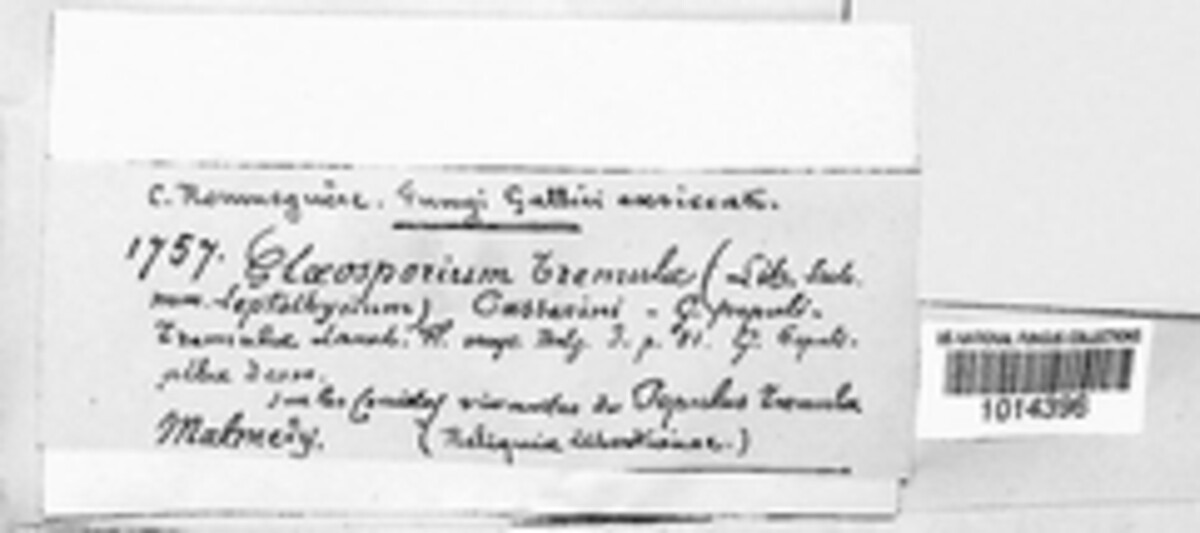 C. Roumeguère. Fungi Gallici exsiccati.
1757. Glœosporium Tremulæ (Lib. sub.
nom. Leptothyrium) Passerini - G. populi.
Tremulæ Lamb. Fl. myc. Belg. I. p.
albæ Desm.
sur les feuilles vivantes du Populus Tremula
Malmedy. (Reliquiæ Libertianae.)
US NATIONAL FUNGUS COLLECTIONS
1014396